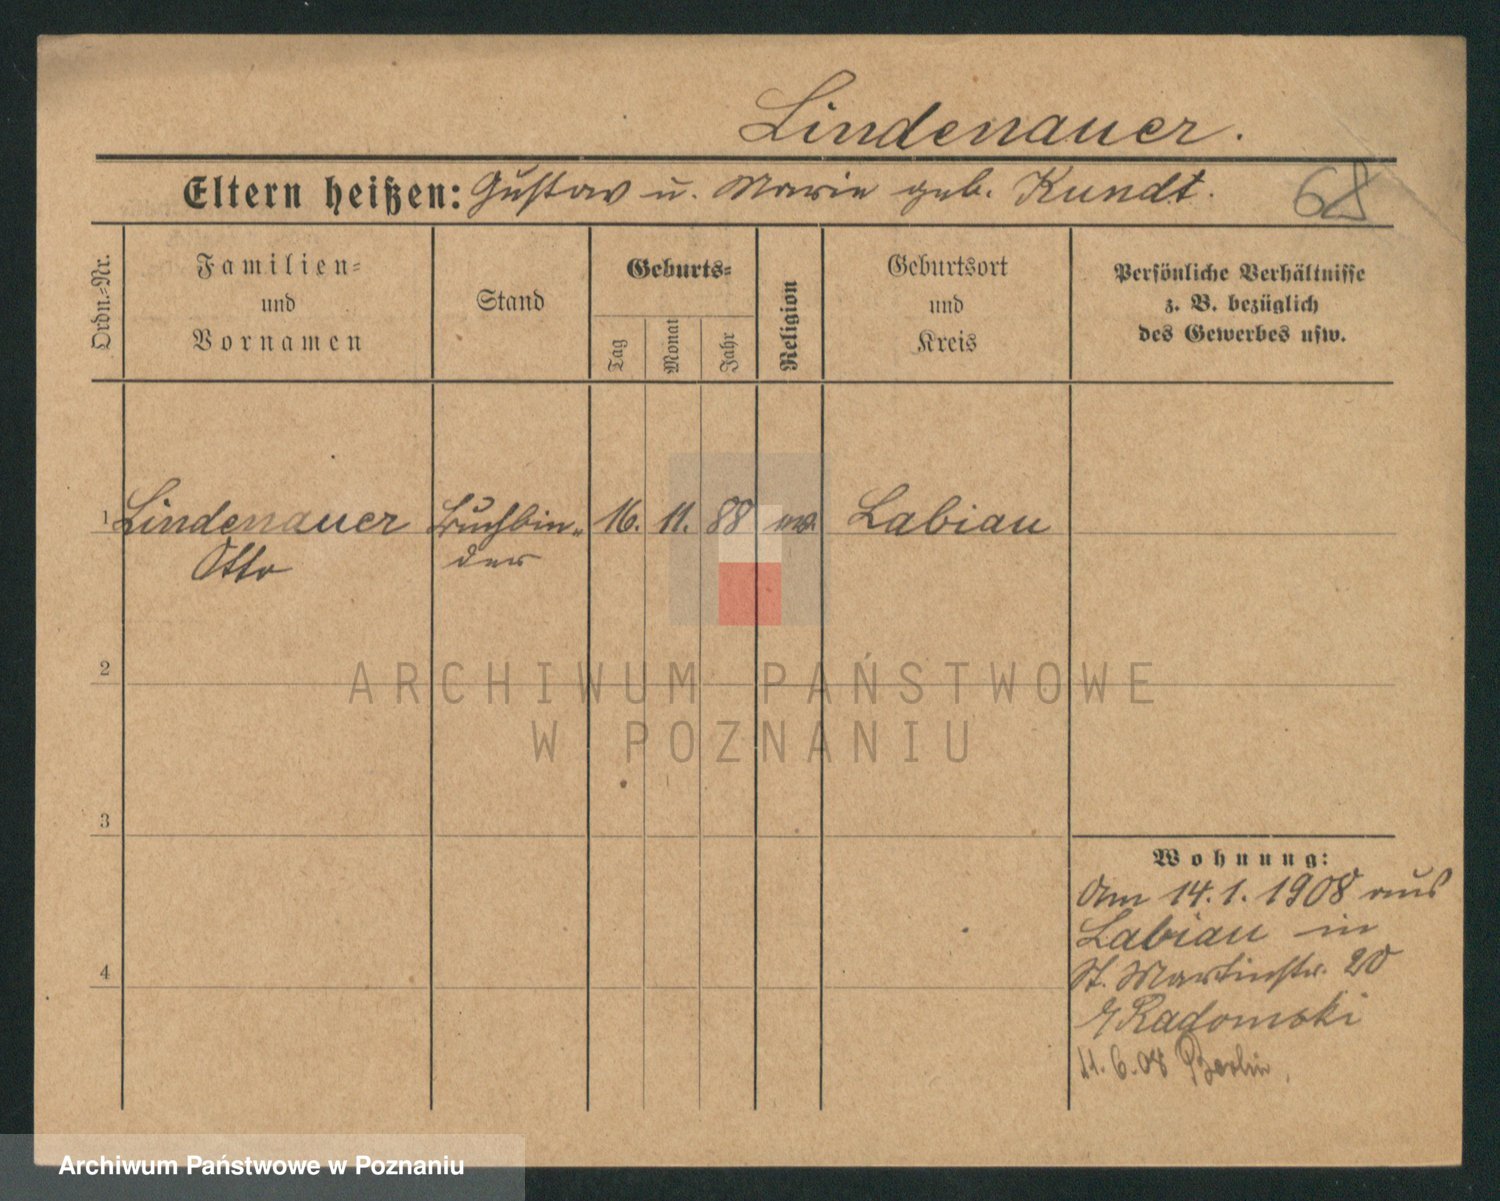 Lindenauer.
Eltern heißen: Gustav u. Marie geb. Kundt.
68
Ordn.-Nr.
Familien-
und
Vornamen
Stand
Geburts-
Tag
Monat
Jahr
Religion
Geburtsort
und
Kreis
Persönliche Verhältnisse
z. B. bezüglich
des Gewerbes usw.
1 Lindenauer Buchbin- 16. 11. 88 ev. Labiau
Otto der
2
ARCHIWUM PAŃSTWOWE
W POZNANIU
3
Wohnung:
Am 14.1.1908 aus
Labiau in
4
St. Martinstr. 20
Radomski
11.6.08 Berlin.
Archiwum Państwowe w Poznaniu